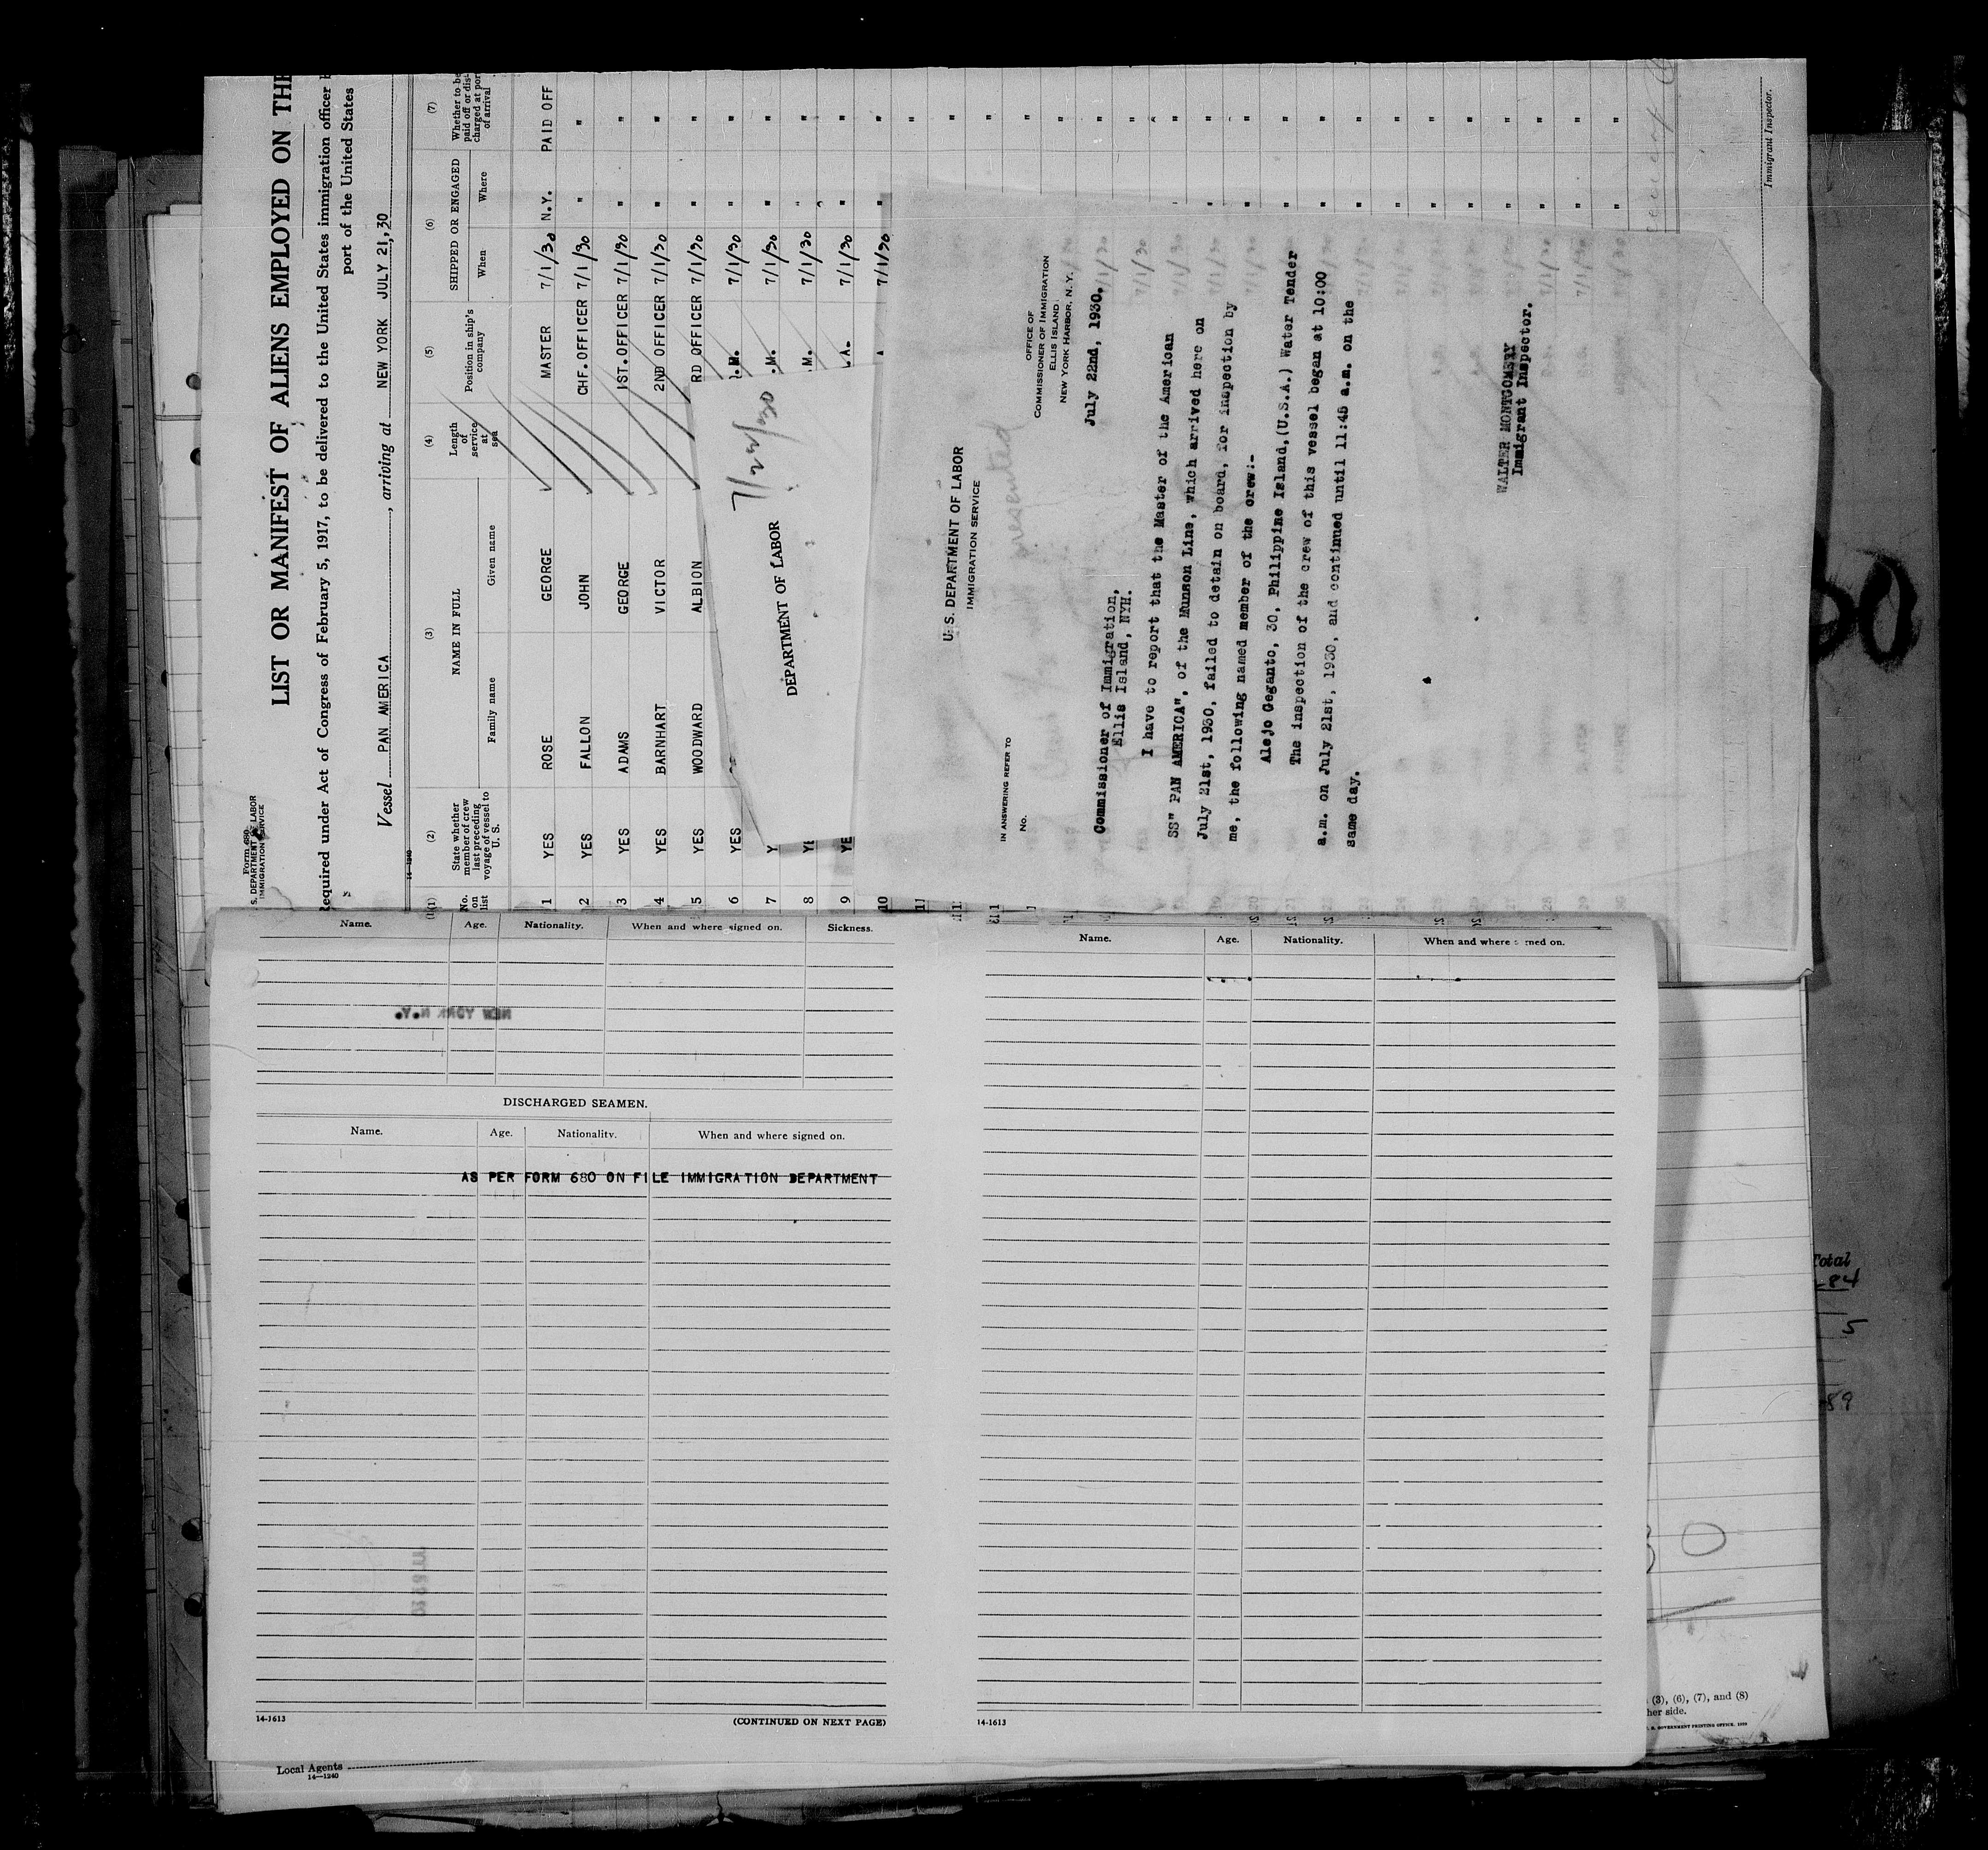 Form 680
S. DEPARTMENT OF LABOR
IMMIGRATION SERVICE
LIST OR MANIFEST OF ALIENS EMPLOYED ON THE
Required under Act of Congress of February 5, 1917, to be delivered to the United States immigration officer
port of the United States
Vessel PAN AMERICA, arriving at NEW YORK JULY 21, 30
14-1240
(1) (2) (3) (4) (5) (6) (7)
No. on list
State whether member of crew last preceding voyage of vessel to U. S.
NAME IN FULL
Family name Given name
Length of service at sea
Position in ship's company
SHIPPED OR ENGAGED
When Where
Whether to be paid off or discharged at port of arrival
1 YES ROSE GEORGE MASTER 7/1/30 N.Y. PAID OFF
2 YES FALLON JOHN CHF.OFFICER 7/1/30 " "
3 YES ADAMS GEORGE 1ST.OFFICER 7/1/30 " "
4 YES BARNHART VICTOR 2ND OFFICER 7/1/30 " "
5 YES WOODWARD ALBION RD OFFICER 7/1/30 " "
6 YES .M. 7/1/30 " "
7 Y .M. 7/1/30 " "
8 YE .M. 7/1/30 " "
9 YE .A. 7/1/30 " "
10 7/1/30 " "
DEPARTMENT OF LABOR
7/22/30
U. S. DEPARTMENT OF LABOR
IMMIGRATION SERVICE
IN ANSWERING REFER TO
No.
OFFICE OF
COMMISSIONER OF IMMIGRATION
ELLIS ISLAND
NEW YORK HARBOR, N. Y.
July 22nd, 1930.
Commissioner of Immigration,
Ellis Island, NYH.
I have to report that the Master of the American
SS" PAN AMERICA", of the Munson Line, which arrived here on
July 21st, 1930, failed to detain on board, for inspection by
me, the following named member of the crew:-
Alejo Geganto, 30, Philippine Island,(U.S.A.) Water Tender
The inspection of the crew of this vessel began at 10:00
a.m. on July 21st, 1930, and continued until 11:45 a.m. on the
same day.
WALTER MONTGOMERY
Immigrant Inspector.
Immigrant Inspector.
Name. Age. Nationality. When and where signed on. Sickness.
NEW YORK N.Y.
DISCHARGED SEAMEN.
Name. Age. Nationality. When and where signed on.
AS PER FORM 680 ON FILE IMMIGRATION DEPARTMENT
14-1613
(CONTINUED ON NEXT PAGE)
Name. Age. Nationality. When and where signed on.
14-1613
Local Agents
14-1240
Total
84
5
89
(3), (6), (7), and (8)
her side.
GOVERNMENT PRINTING OFFICE